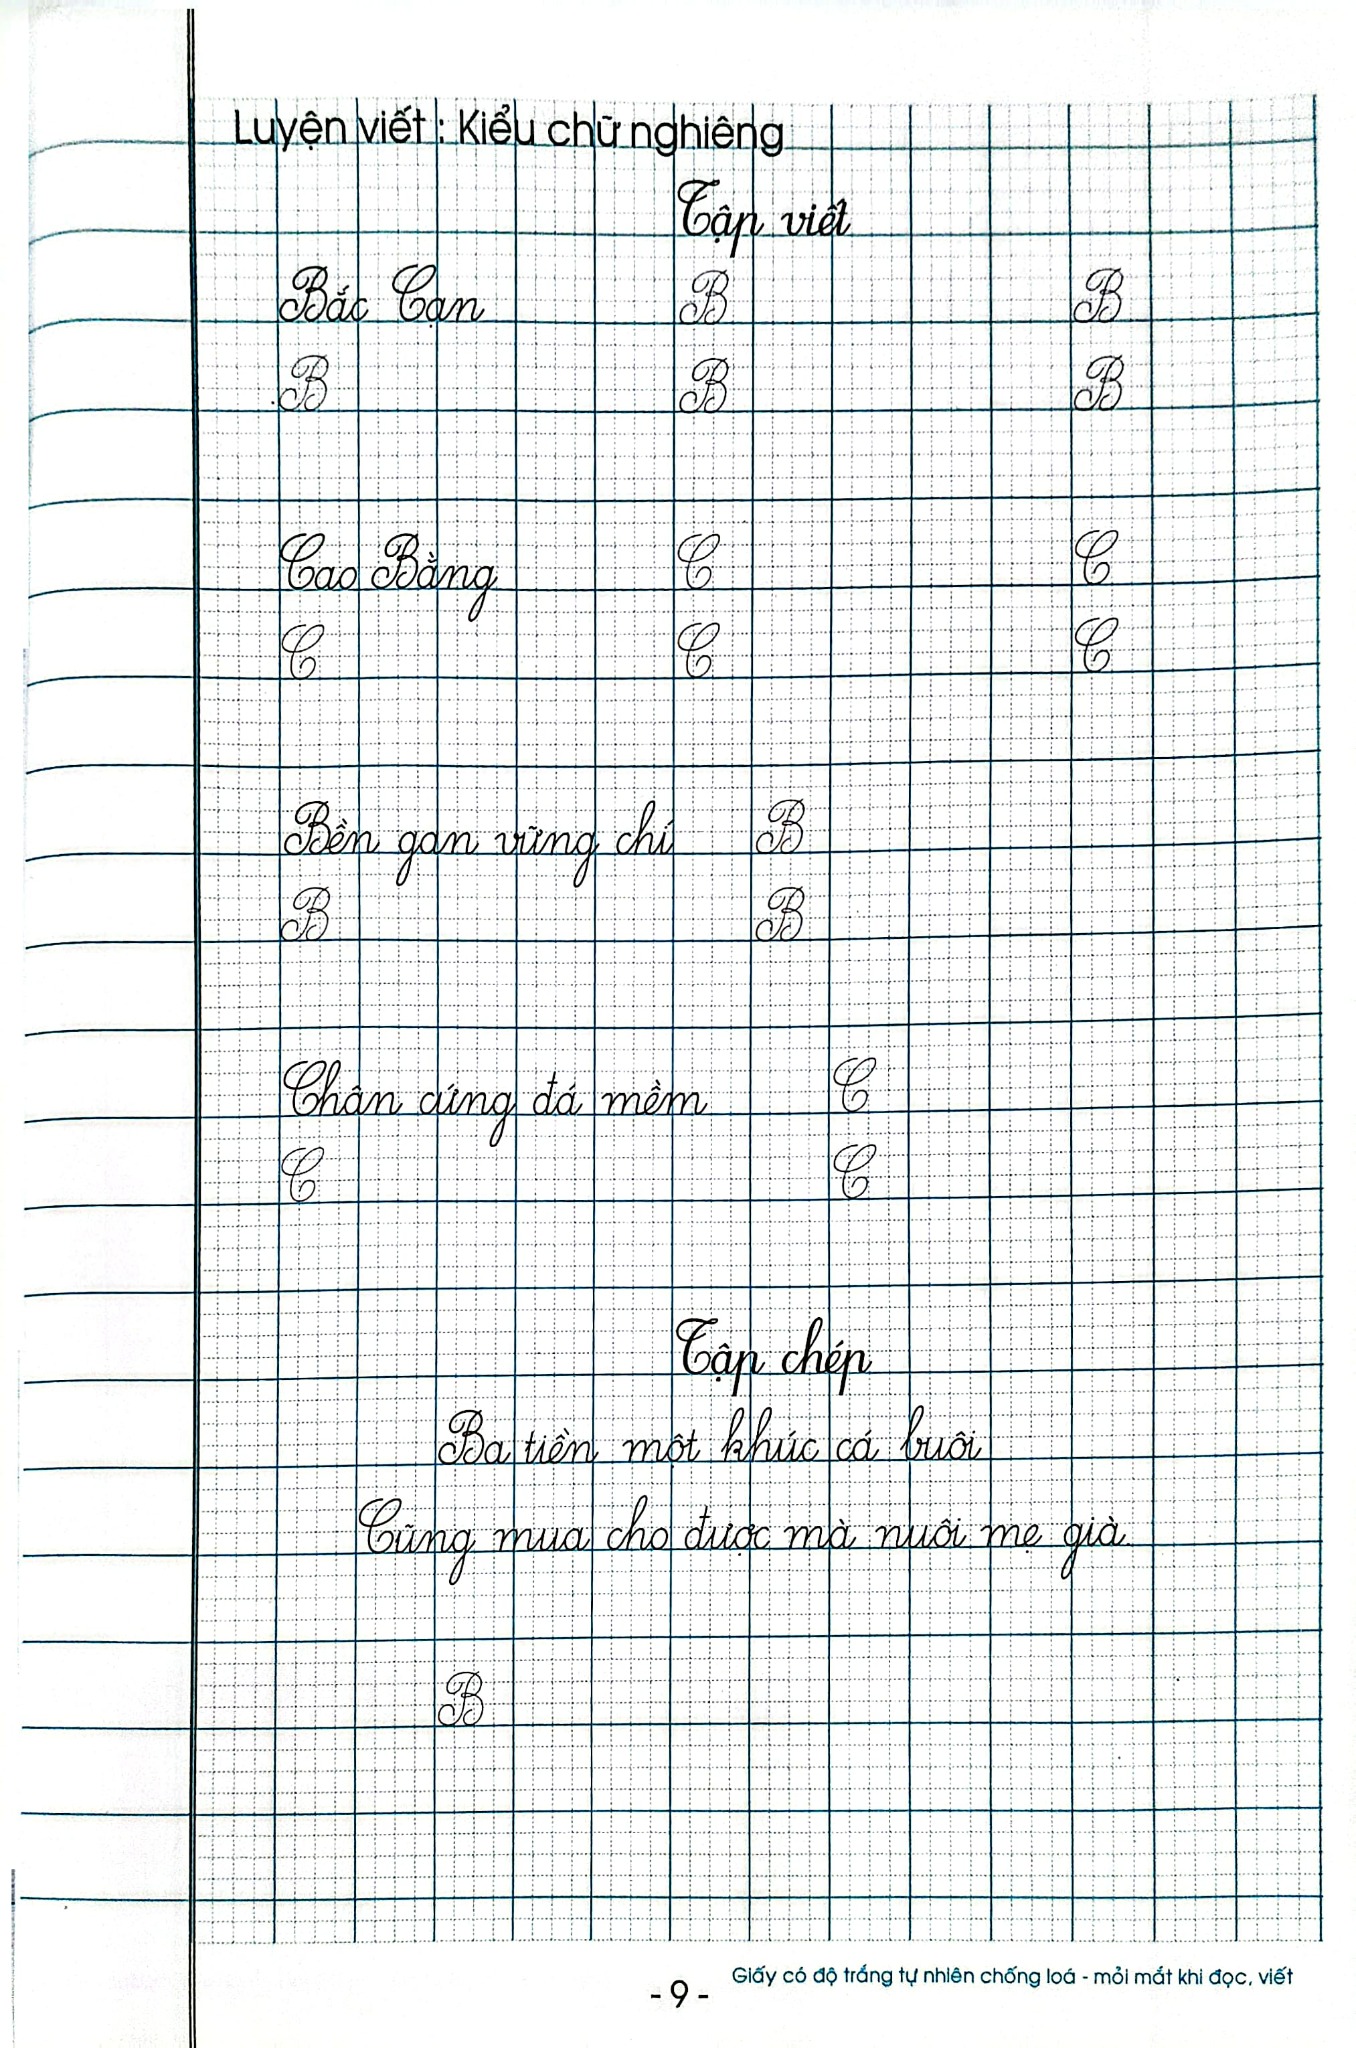 Luyện viết : Kiểu chữ nghiêng
Tập viết
Bắc Cạn B B
B B B
Cao Bằng C C
C C C
Bền gan vững chí B
B B
Chân cứng đá mềm C
C C
Tập chép
Ba tiền một khúc cá buôi
Cũng mua cho được mà nuôi mẹ già.
B
Giấy có độ trắng tự nhiên chống loá - mỏi mắt khi đọc, viết
- 9 -